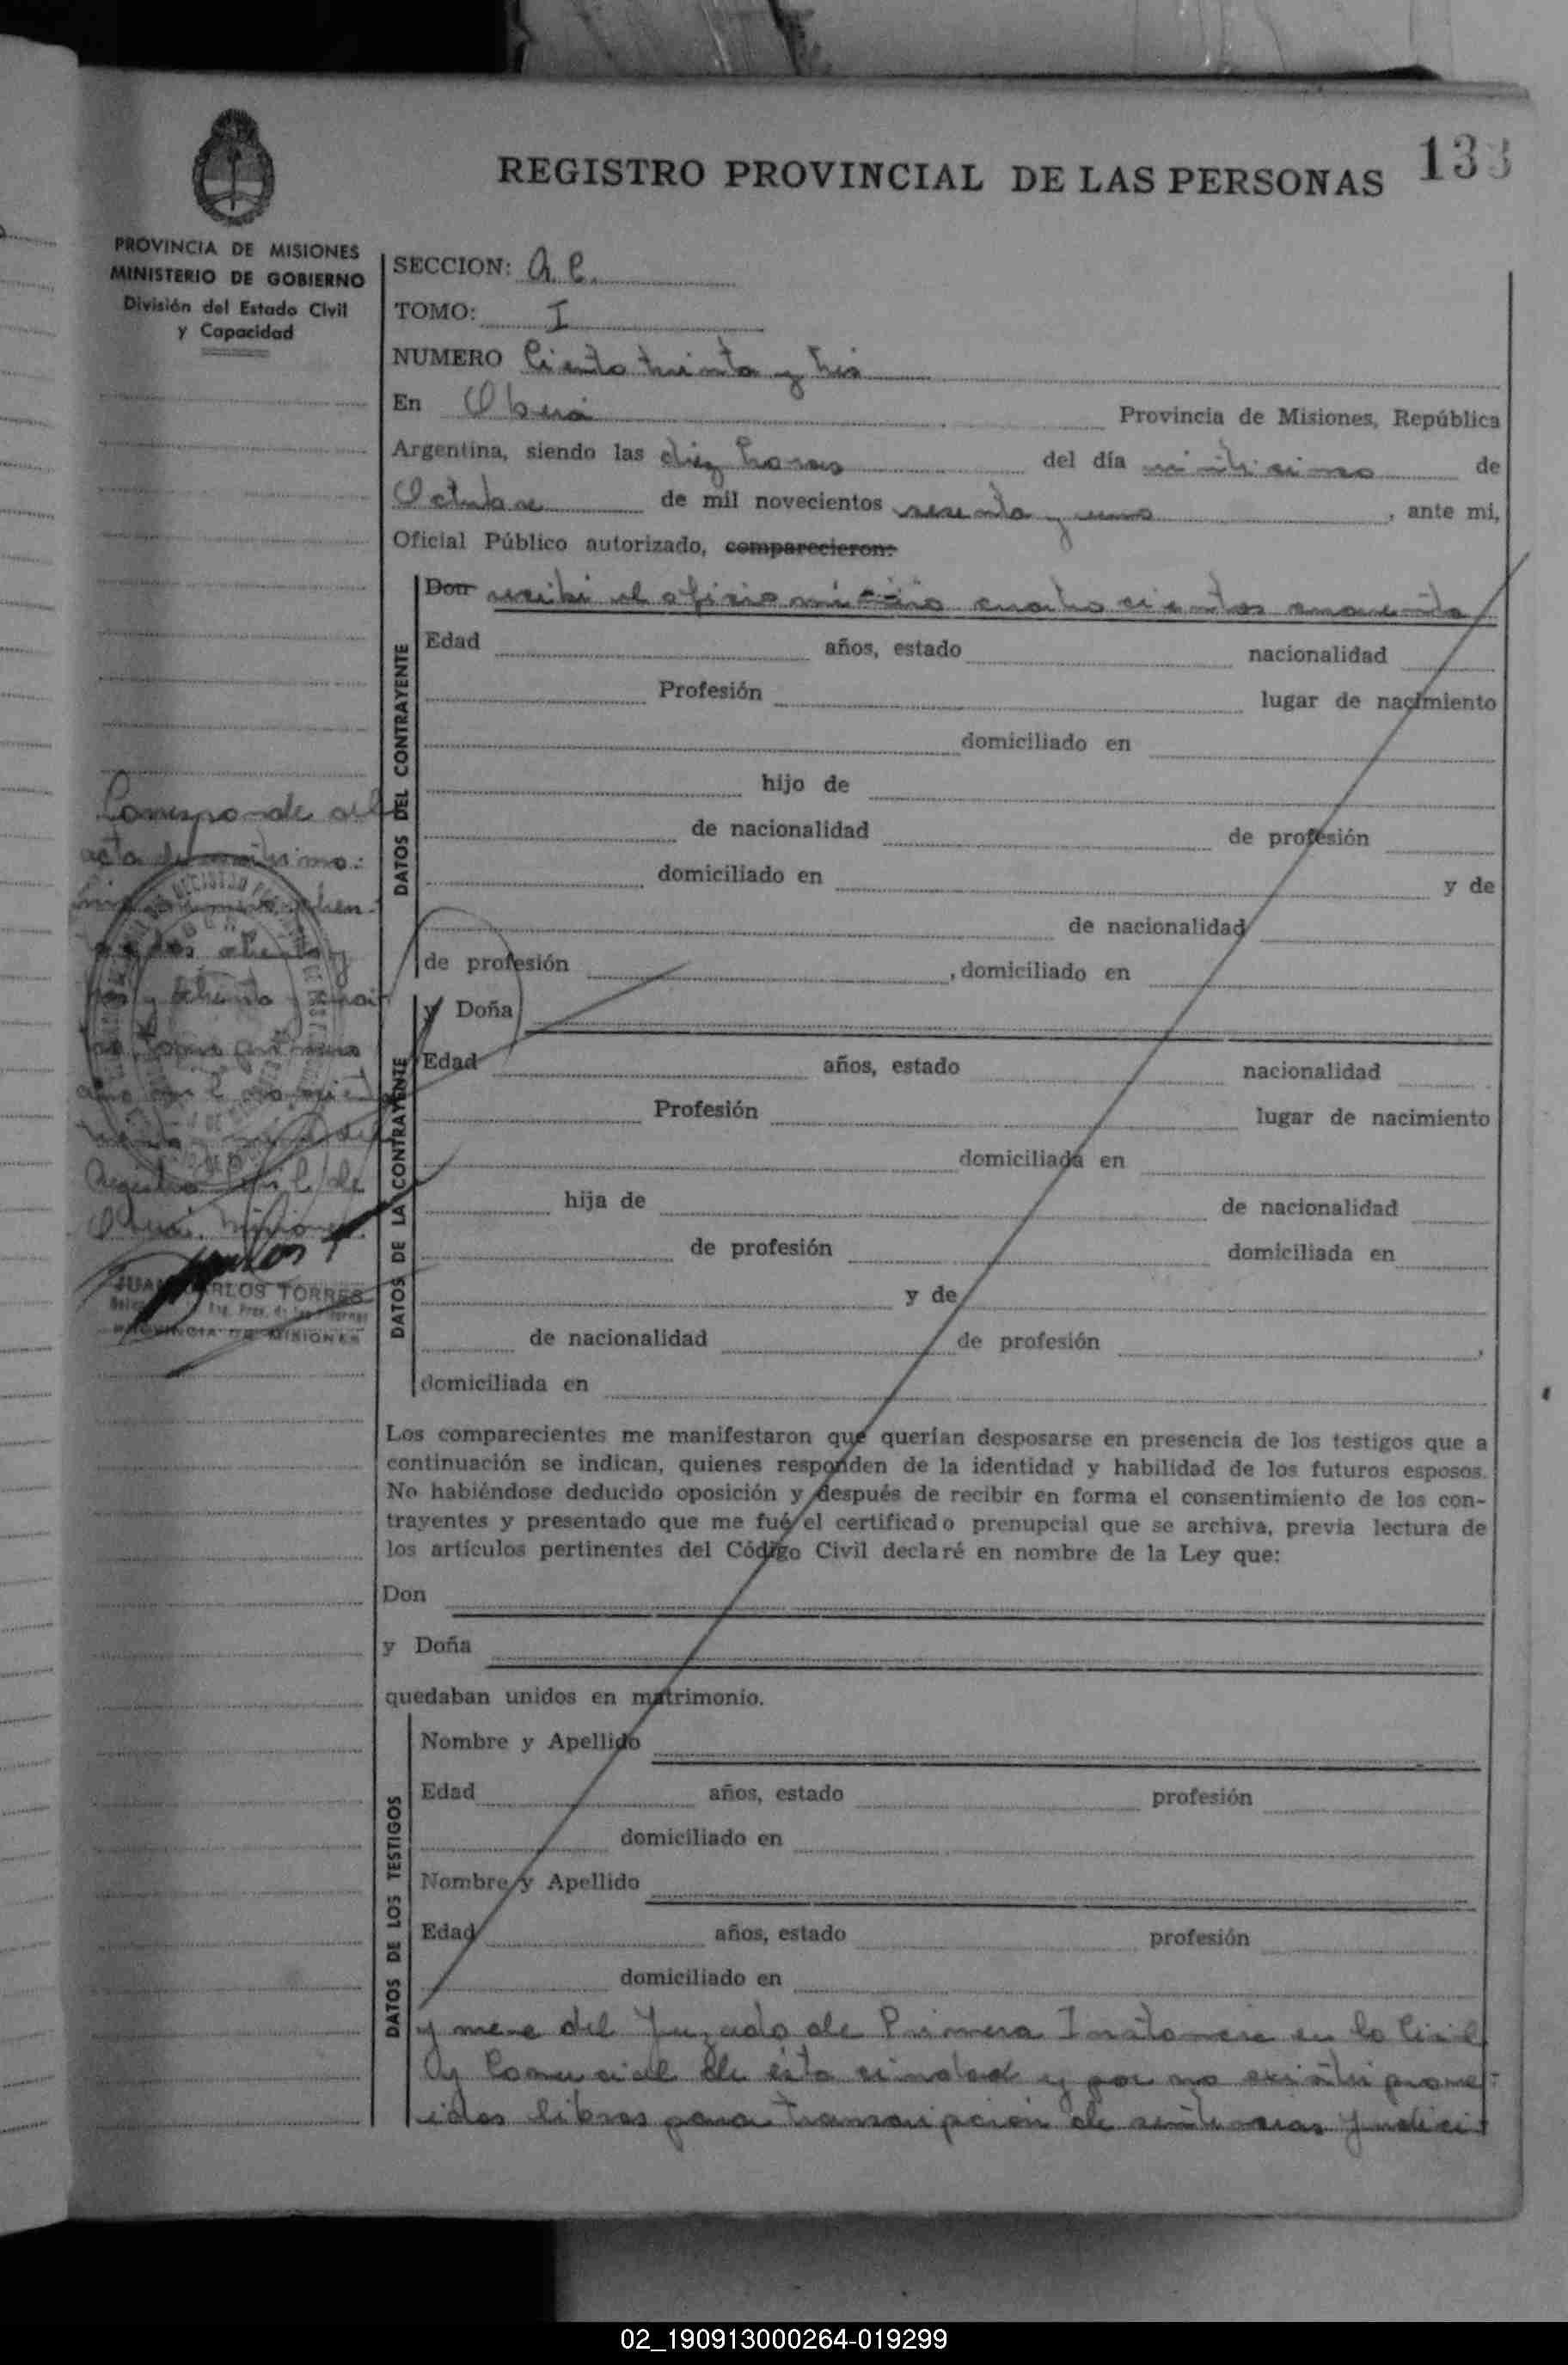 REGISTRO PROVINCIAL DE LAS PERSONAS 133
PROVINCIA DE MISIONES
MINISTERIO DE GOBIERNO
División del Estado Civil
y Capacidad
SECCION: A C.
TOMO: I
NUMERO Ciento treinta y tres
En Oberá Provincia de Misiones, República
Argentina, siendo las diez horas del día de
Octubre de mil novecientos sesenta y uno, ante mi,
Oficial Público autorizado, comparecieron:
DATOS DEL CONTRAYENTE
Don recibí el oficio cuatro cientos cuarenta
Edad años, estado nacionalidad
Profesión lugar de nacimiento
domiciliado en
hijo de
de nacionalidad de profesión
domiciliado en y de
de nacionalidad
de profesión , domiciliado en
DATOS DE LA CONTRAYENTE
y Doña
Edad años, estado nacionalidad
Profesión lugar de nacimiento
domiciliada en
hija de de nacionalidad
de profesión domiciliada en
y de
de nacionalidad de profesión ,
domiciliada en
Corresponde al
acta
Registro Civil de
Oberá. Misiones.
JUAN CARLOS TORRES
PROVINCIA DE MISIONES
Los comparecientes me manifestaron que querían desposarse en presencia de los testigos que a
continuación se indican, quienes responden de la identidad y habilidad de los futuros esposos.
No habiéndose deducido oposición y después de recibir en forma el consentimiento de los con-
trayentes y presentado que me fué el certificado prenupcial que se archiva, previa lectura de
los artículos pertinentes del Código Civil declaré en nombre de la Ley que:
Don
y Doña
quedaban unidos en matrimonio.
DATOS DE LOS TESTIGOS
Nombre y Apellido
Edad años, estado profesión
domiciliado en
Nombre y Apellido
Edad años, estado profesión
domiciliado en
y nueve del Juzgado de Primera Instancia en lo Civil
y Comercial de ésta ciudad y por no existir
libros para transcripción de sentencias Judici
02_190913000264-019299